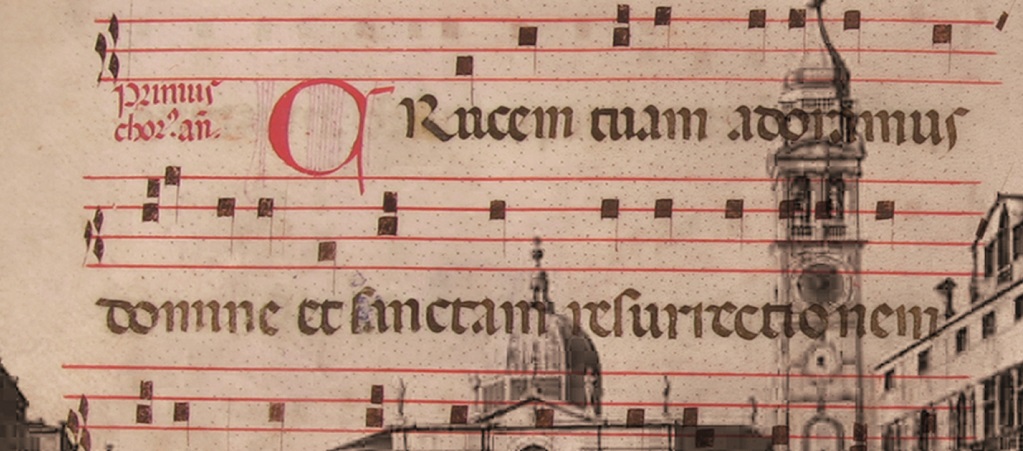 primus
chor⁹. añ.
CRucem tuam adoramus
domine et sanctam resurrectionem